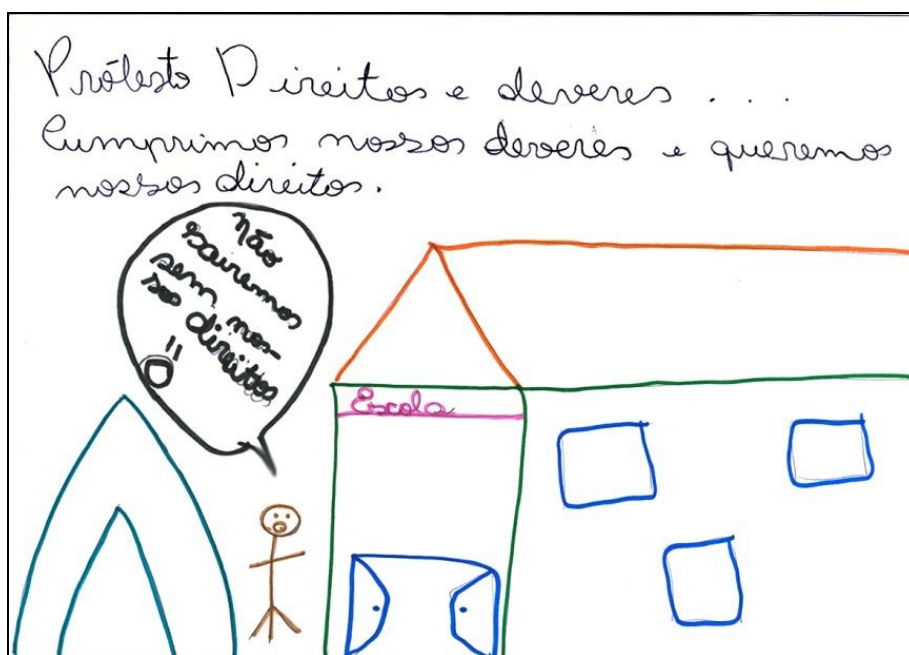 Prótesto Direitos e deveres . . .
Cumprimos nossos deveres e queremos
nossos direitos.
não
sairemos
sem nos-
sos direitos
!!
Escola